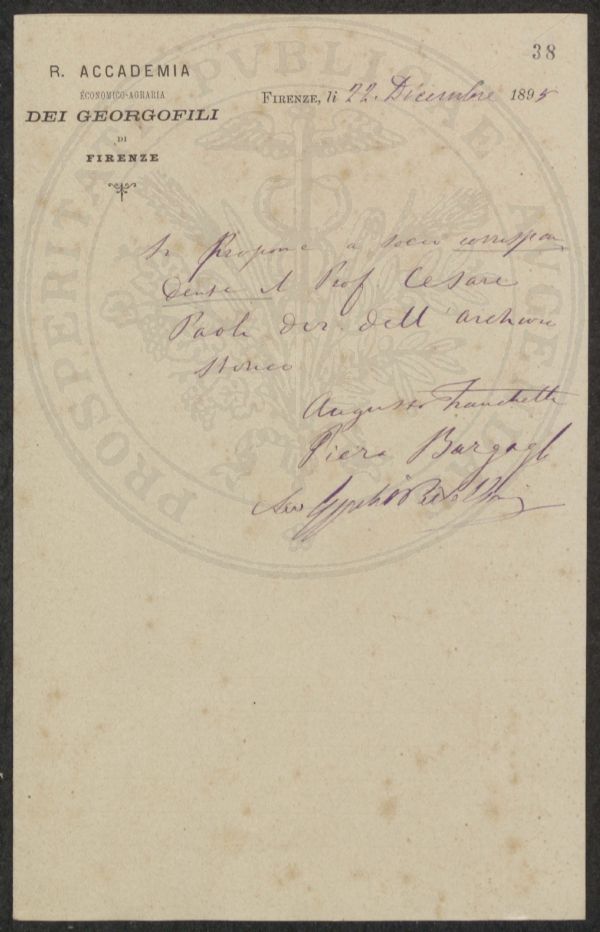 38
R. ACCADEMIA
ECONOMICO-AGRARIA
DEI GEORGOFILI
DI
FIRENZE
FIRENZE, li 22. Dicembre 1895
PROSPERITATI PVBLICAE AVGENDAE
Si propone a socio corrispon
dente il Prof. Cesare
Paoli dir. dell'archivio
storico
Augusto Franchetti
Piero Bargagli